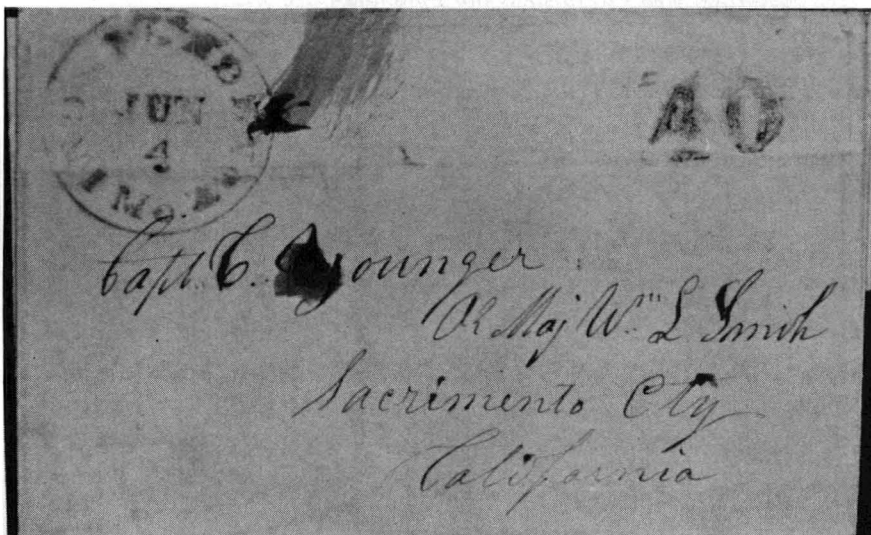 JUN
4
Mo.
40
Capt. C. Younger
Or Maj Wm L Smith
Sacrimento Cty
California